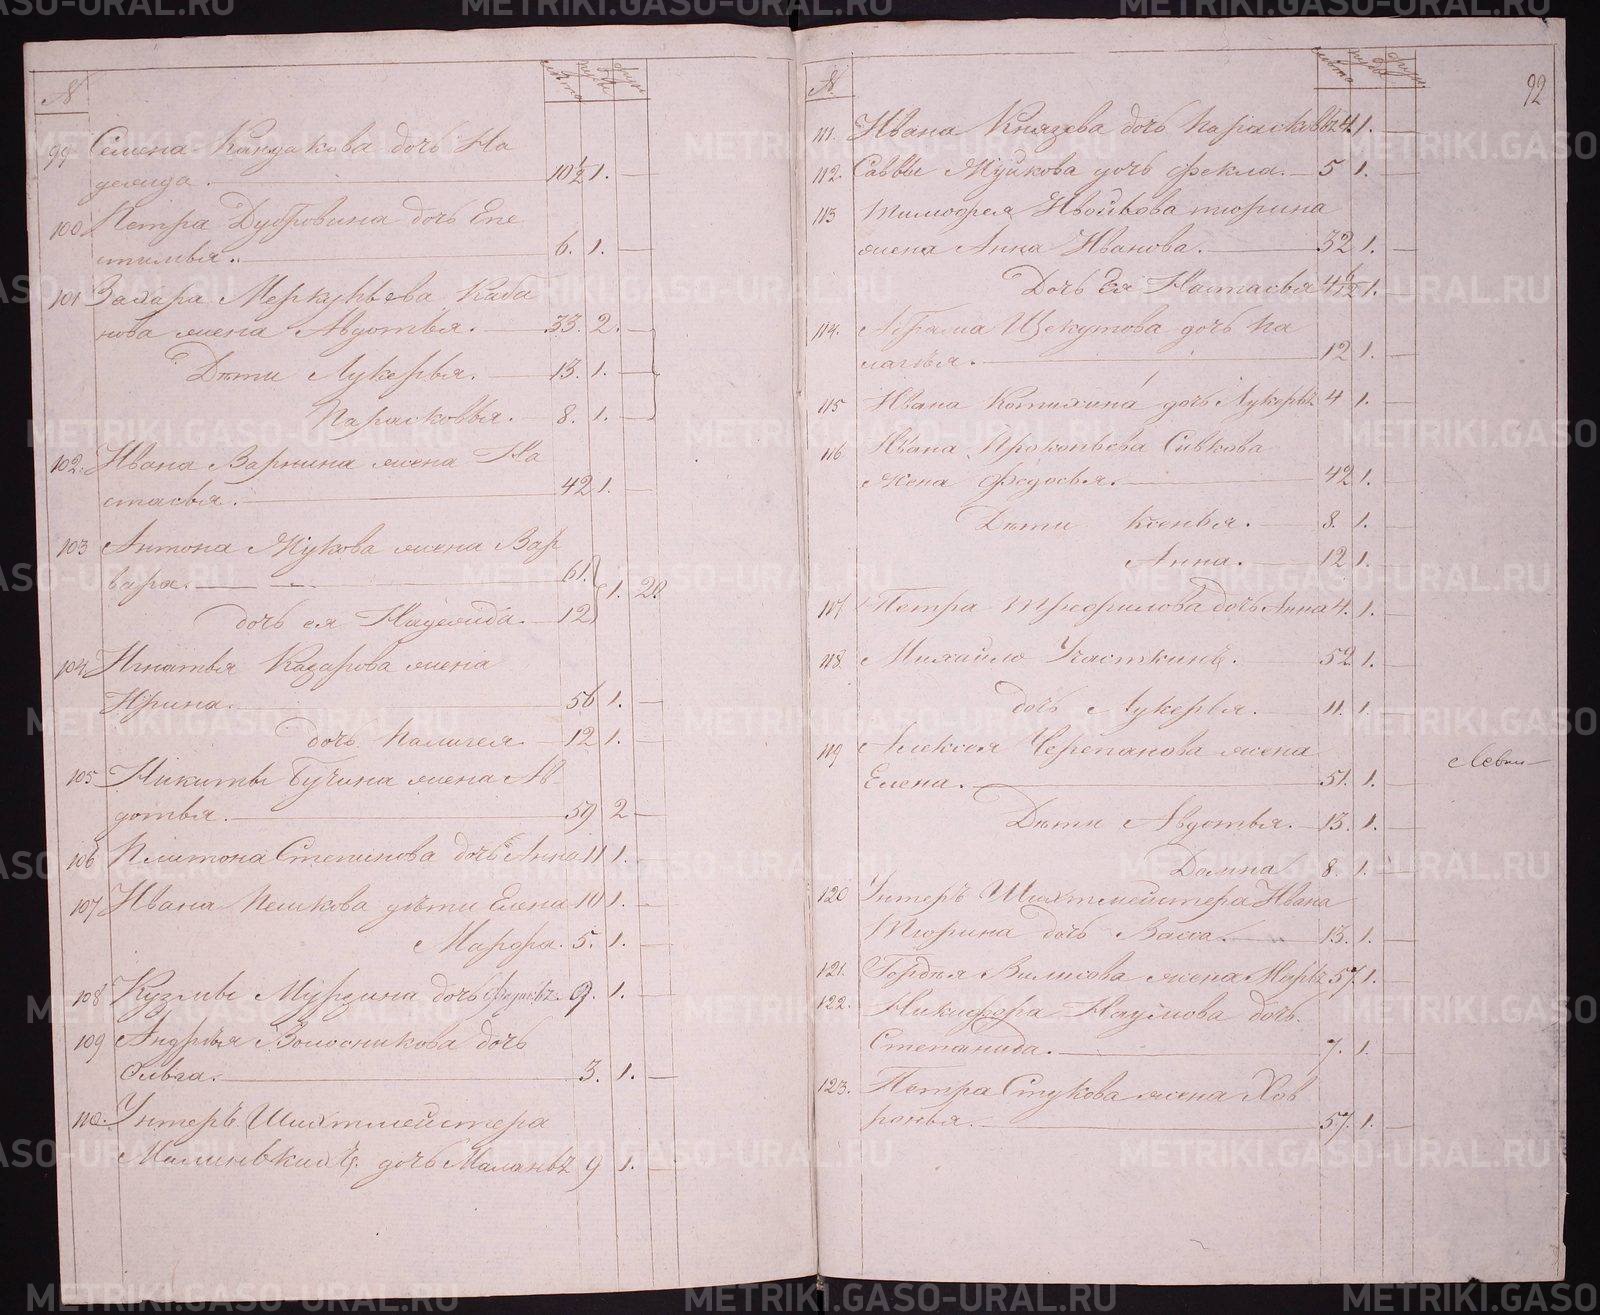 № лѣта пуды фун
99 Семена Кандакова дочь На
дежида. 10½ 1. —
100 Петра Дубровина дочь Епе
стимья. 6. 1. —
101 Захара Меркурьева Каба
нова жена Авдотья. 33. 2. —
Дѣти Лукерья. 13. 1. —
Парасковья. 8. 1. —
102. Ивана Варнина жена На
стасья. 42 1. —
103 Антона Жукова жена Вар
вара. 61. 1. 20
дочь ея Надежида. 12
104 Игнатья Казарова жена
Ирина. 56 1. —
дочь Палагея 12 1. —
105 Никиты Бучина жена Ав
дотья. 59 2 —
106 Платона Степанова дочь Анна 11 1. —
107 Ивана Пешкова дѣти Елена 10 1. —
Марфа. 5. 1. —
108 Кузмы Мурзина дочь 9. 1. —
109 Андрѣя Волосникова дочь
Ольга. 3. 1. —
110. Унтеръ Шихтмейстера
дочь Маланья 9 1. —
92
№ лѣта пуды фун
111. Ивана Князева дочь Парасковья 4 1. —
112. Саввы Жуйкова дочь Фекла. 5 1. —
113 Тимофея Ивойлова Тюрина
жена Анна Иванова. 32 1. —
Дочь Ея Настасья 4½ 1. —
114. Абрама Щекутова дочь Па
лагѣя. 12 1. —
115 Ивана Котихина дочь Лукерья 4 1. —
116 Ивана Прокопьева Сивкова
Жена Федосья. 42 1. —
Дѣти Ксенья. 8. 1. —
Анна. 12 1. —
117. Петра Трофилова дочь Анна 4. 1. —
118. Михайло Участкинъ. 52 1. —
дочь Лукерья. 11. 1. —
119 Алексѣя Черепанова жена
Елена. 51. 1. —
Дѣти Авдотья. 13. 1. —
Домна 8. 1. —
120 Унтеръ Шихтмейстера Ивана
Тюрина дочь Васса. 13. 1. —
121. Гордѣя Виликова жена Марья 57. 1. —
122. Никифора Наумова дочь
Степанида. 7. 1. —
123. Петра Стукова жена Хов
ронья. 57. 1. —
METRIKI.GASO-URAL.RU